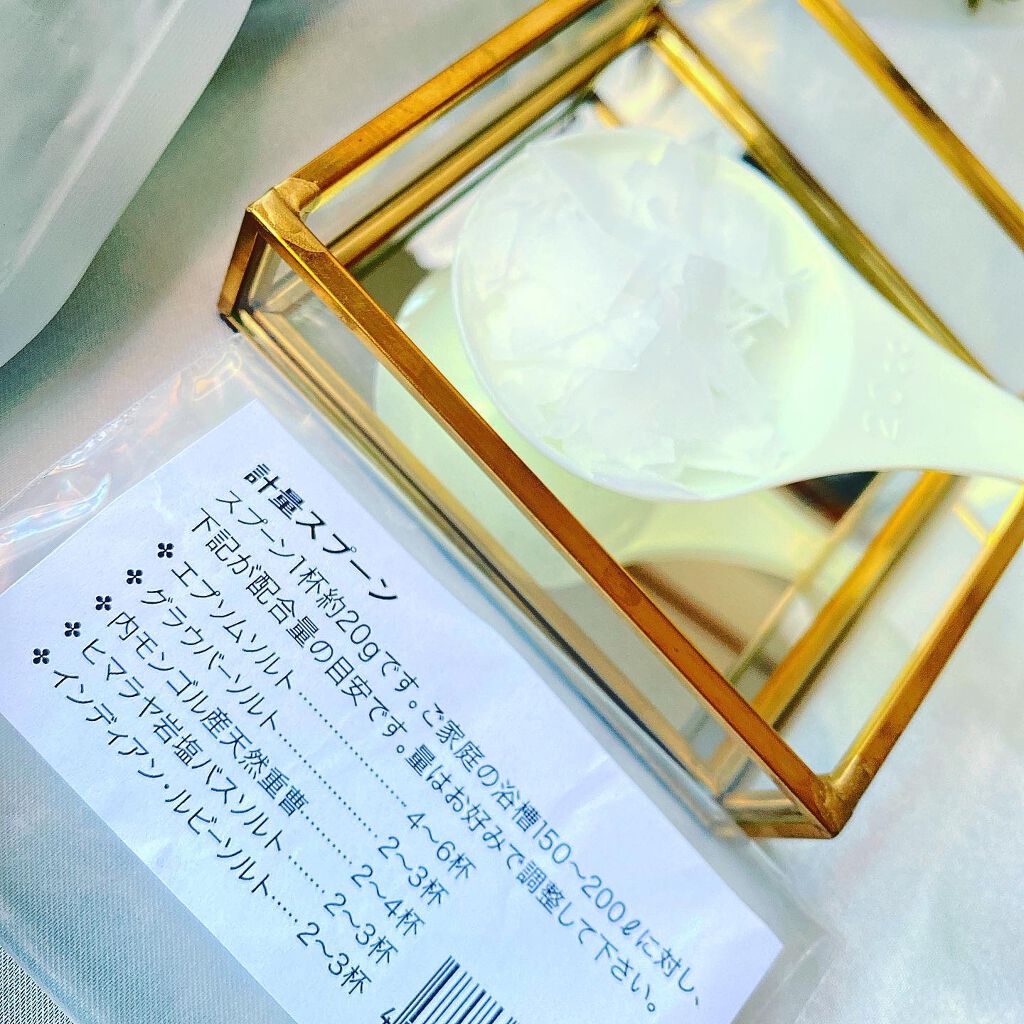 計量スプーン
スプーン1杯約20gです。ご家庭の浴槽150〜200ℓに対し、
下記が配合量の目安です。量はお好みで調整して下さい。
エプソムソルト……………… 4〜6杯
グラウバーソルト…………… 2〜3杯
内モンゴル産天然重曹……… 2〜4杯
ヒマラヤ岩塩バスソルト…… 2〜3杯
インディアン・ルビーソルト…… 2〜3杯